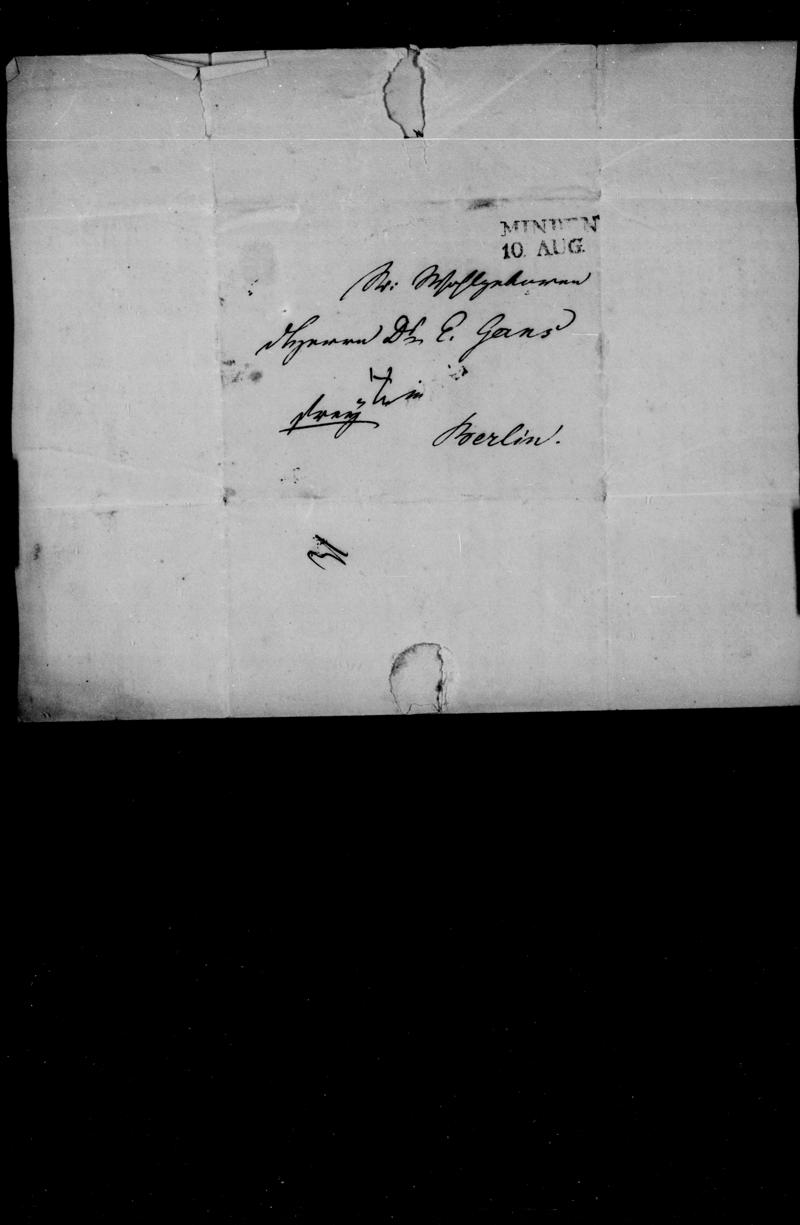 MINDEN
10. AUG.
Sr: Wohlgeboren
Herrn Dr. E. Gans
in
frey
Berlin.